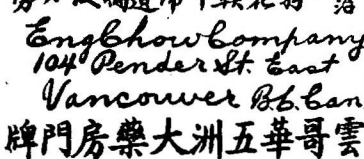 Eng Chow Company
104 Pender St. East
Vancouver B.C. Can
牌門房藥大洲五華哥雲